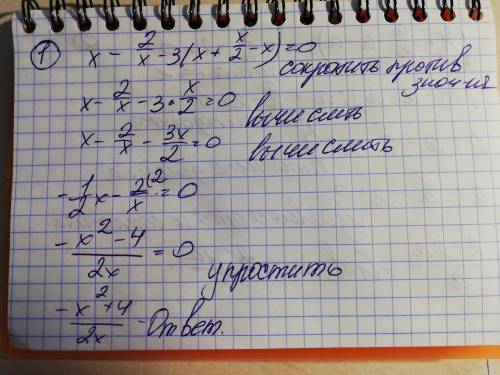 ① x - 2/x - 3(x + x/2 - x) = 0
сократить против
знач-ия
x - 2/x - 3 · x/2 = 0
вычислить
x - 2/x - 3x/2 = 0
вычислить
- 1/2 x - 2(2/x = 0
(-x² - 4)/2x = 0
упростить
- (x² + 4)/2x - Ответ.